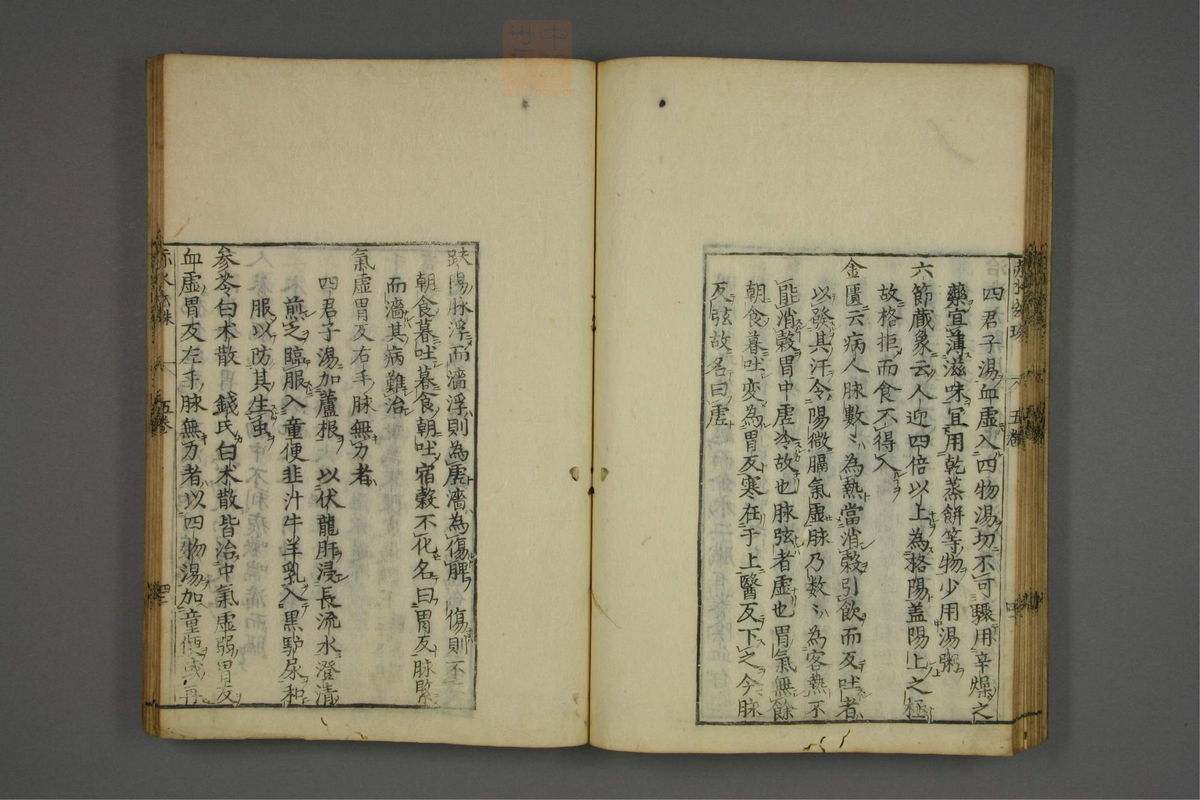 四君子湯血虛入四物湯切不可驟用辛燥之
藥宜薄滋味宜用乾蒸餅等物少用湯粥
六節蔵象云人迎四倍以上為格陽盖陽上之極
故格拒而食不得入
金匱云病人脉數〻為熱當消穀引飲而反吐者
以發其汗令陽微膈氣虛脉乃数〻為客熱不
能消穀胃中虚冷故也脉弦者虚也胃氣無餘
朝食暮吐变為胃反寒在于上醫反下之今脉
反弦故名曰虚
趺陽脉浮而濇浮則為虚濇為傷脾傷則不
朝食暮吐暮食朝吐宿穀不化名曰胃反脉緊
而濇其病難治
氣虛胃反右手脉無力者
四君子湯加蘆根以伏龍肝浸長流水澄清
煎之臨服入童便韭汁牛羊乳入黒驴尿和
服以防其生虫
参苓白术散錢氏白术散皆治中氣虚弱胃反
血虚胃反左手脉無力者以四物湯加童便或再
五卷